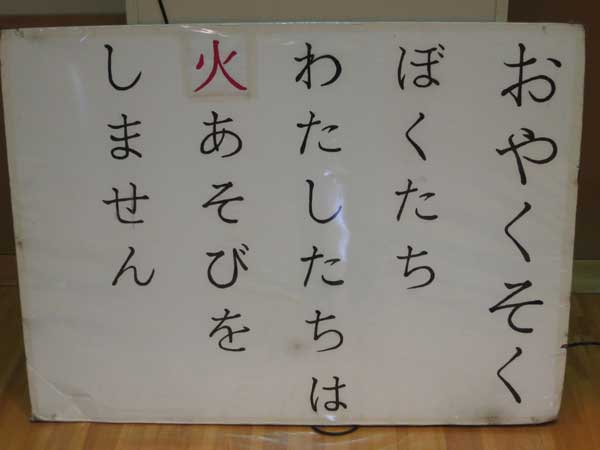 おやくそく
ぼくたち
わたしたちは
火あそびを
しません